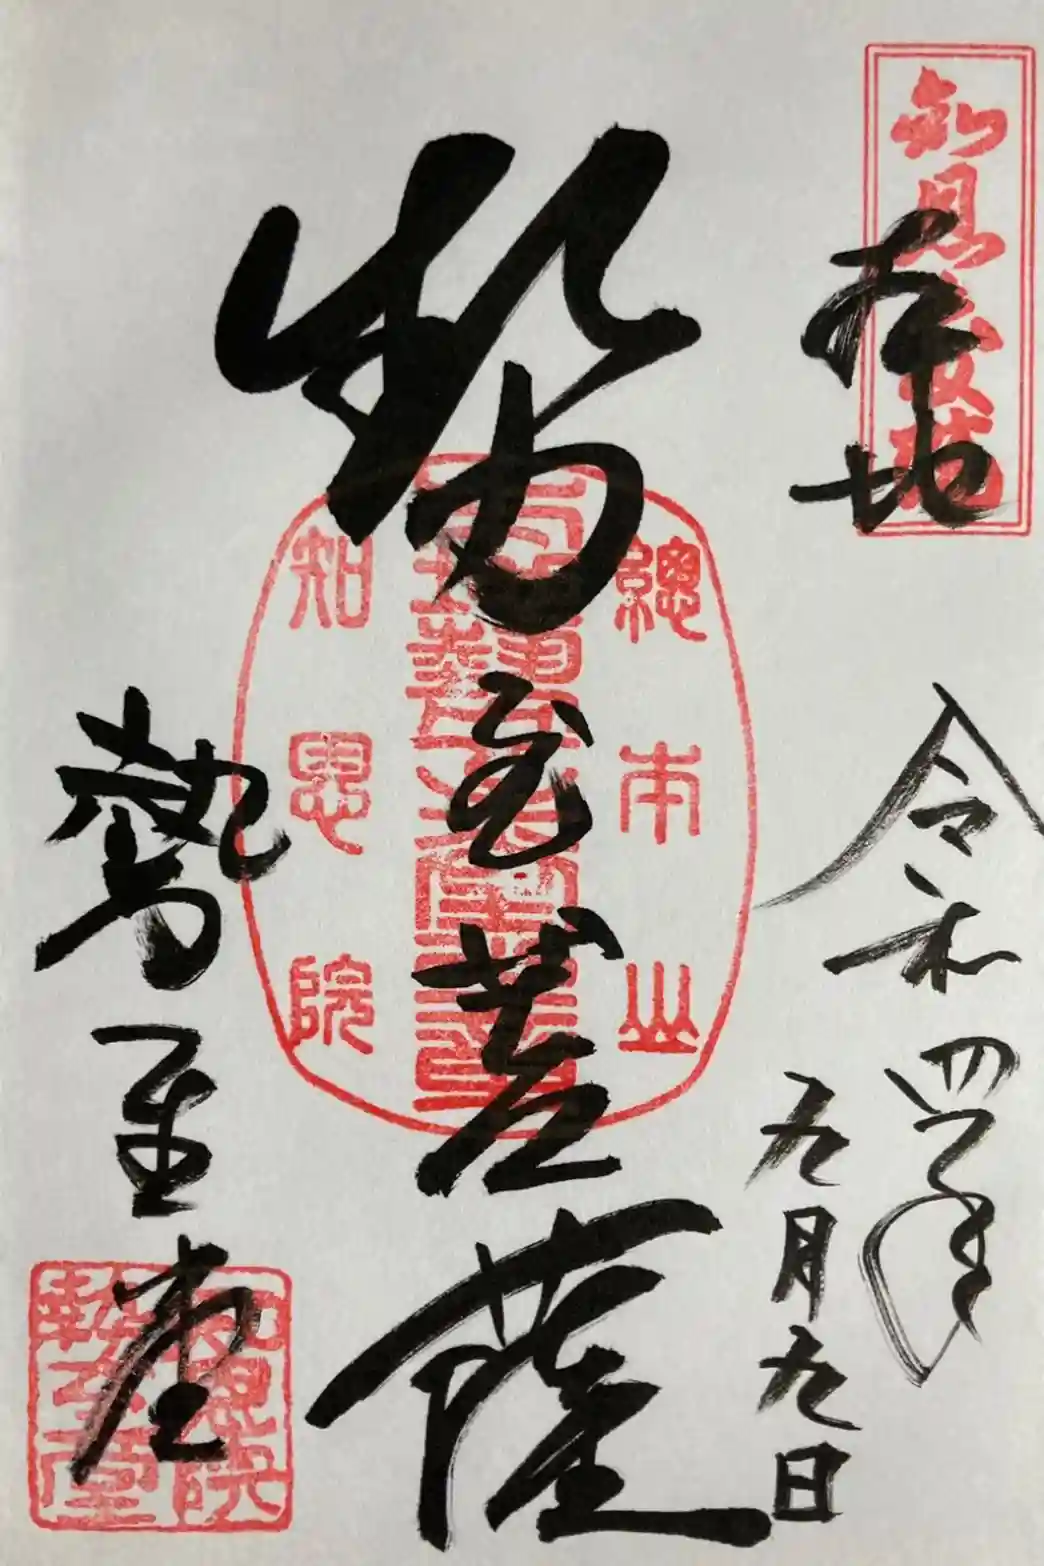 本地
令和四年
九月九日
勢至菩薩
總本山
知恩院
勢至堂
知恩院
勢至堂
知恩